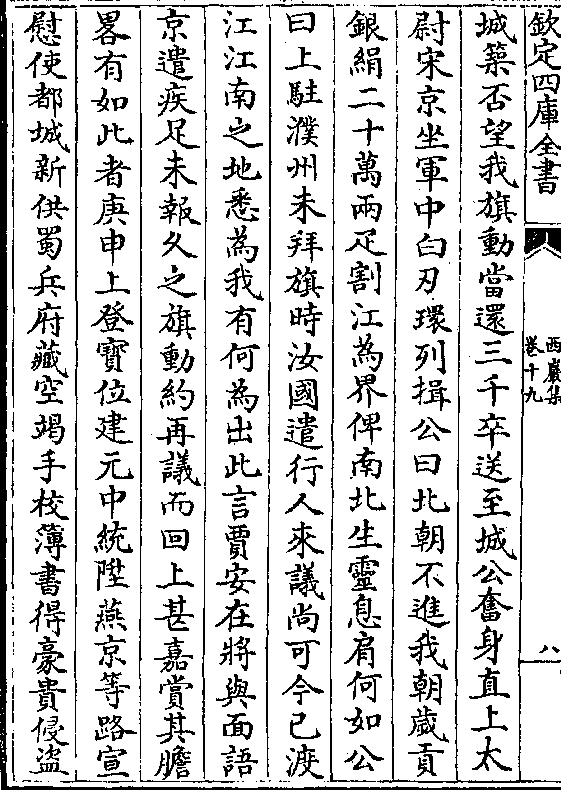 欽定四庫全書
西巖集
卷十九
八
城築否望我旗動當還三千卒送至城公奮身直上太
尉宋京坐軍中白刃環列揖公曰北朝不進我朝歲貢
銀絹二十萬兩疋割江為界俾南北生靈息肩何如公
曰上駐濮州未拜旗時汝國遣行人來議尚可今已渡
江江南之地悉為我有何為出此言賈安在將與面語
京遣疾足未報久之旗動約再議而回上甚嘉賞其膽
畧有如此者庚申上登寶位建元中統陞燕京等路宣
慰使都城新供蜀兵府藏空竭手校簿書得豪貴侵盜